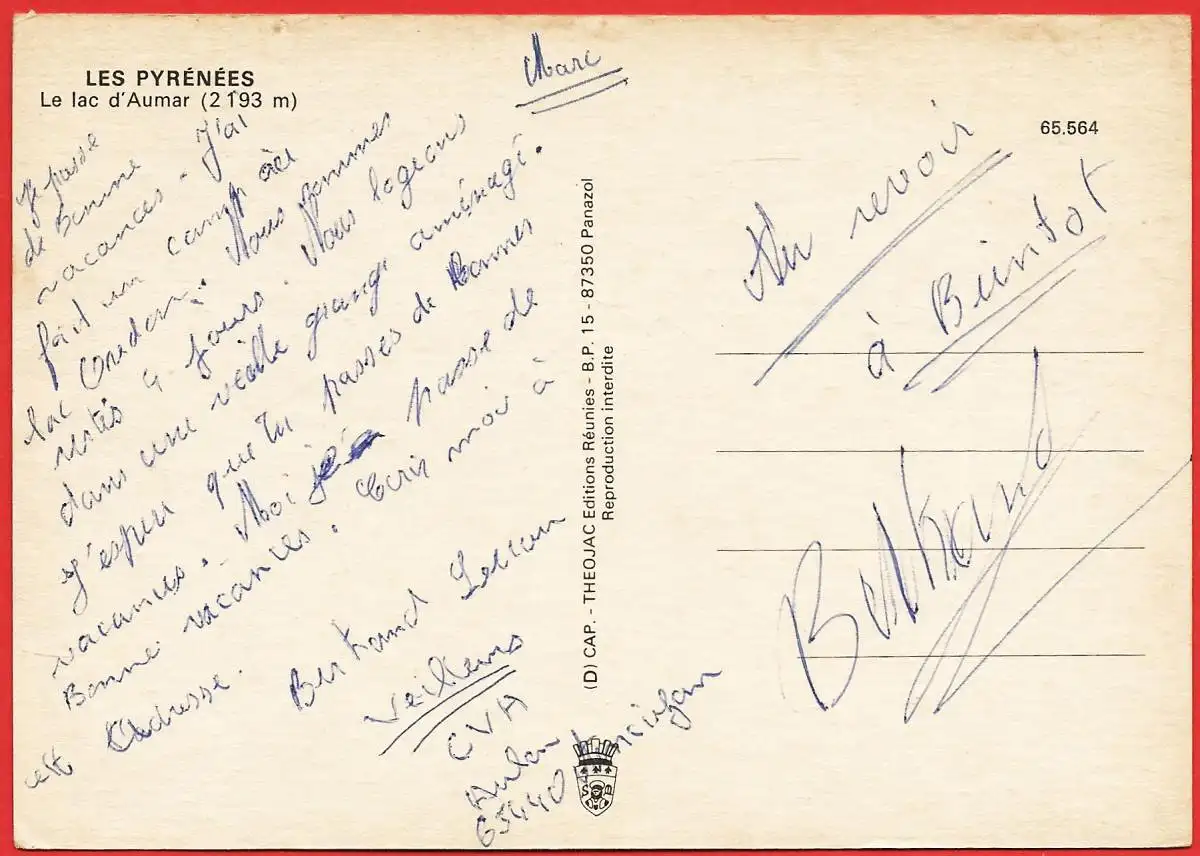 LES PYRÉNÉES
Le lac d'Aumar (2193 m)
65.564
Marc
Je passe
de bonne
vacances. J'ai
fait un camp au
lac Oredon. Nous sommes
restés 4 jours. Nous logeons
dans une veille grange aménagé.
J'esper que tu passes de bonnes
vacances. Moi je passe de
Bonne vacances. Ecris moi à
cett Adresse.
Bertrand
Veilleurs
CVA
Aulon
65440
(D) CAP. - THEOJAC Editions Réunies - B.P. 15 - 87350 Panazol
Reproduction interdite
Au revoir
à Bientot
Bertrand